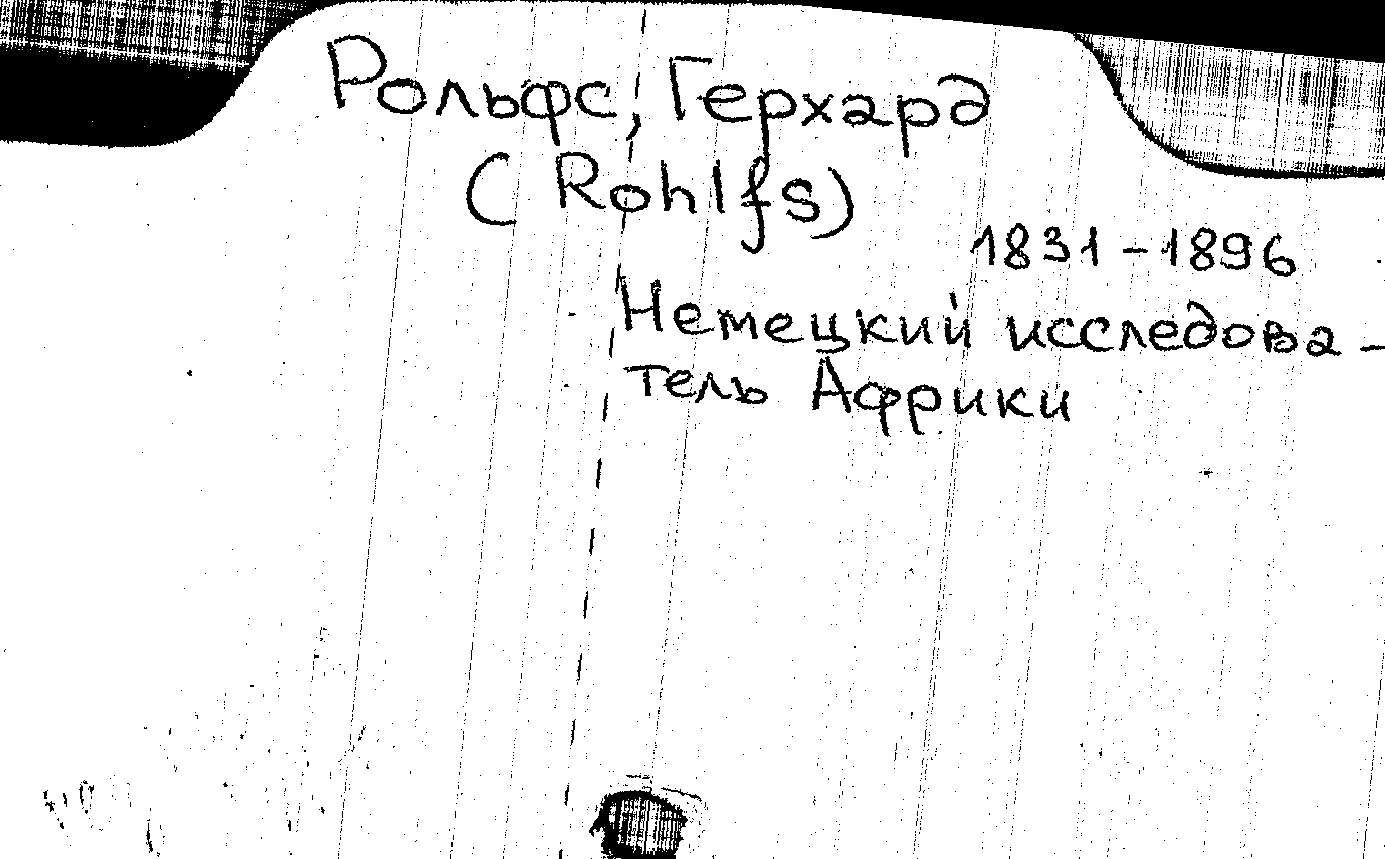 Рольфс, Герхард
(Rohlfs)
1831-1896
Немецкий исследова-
тель Африки